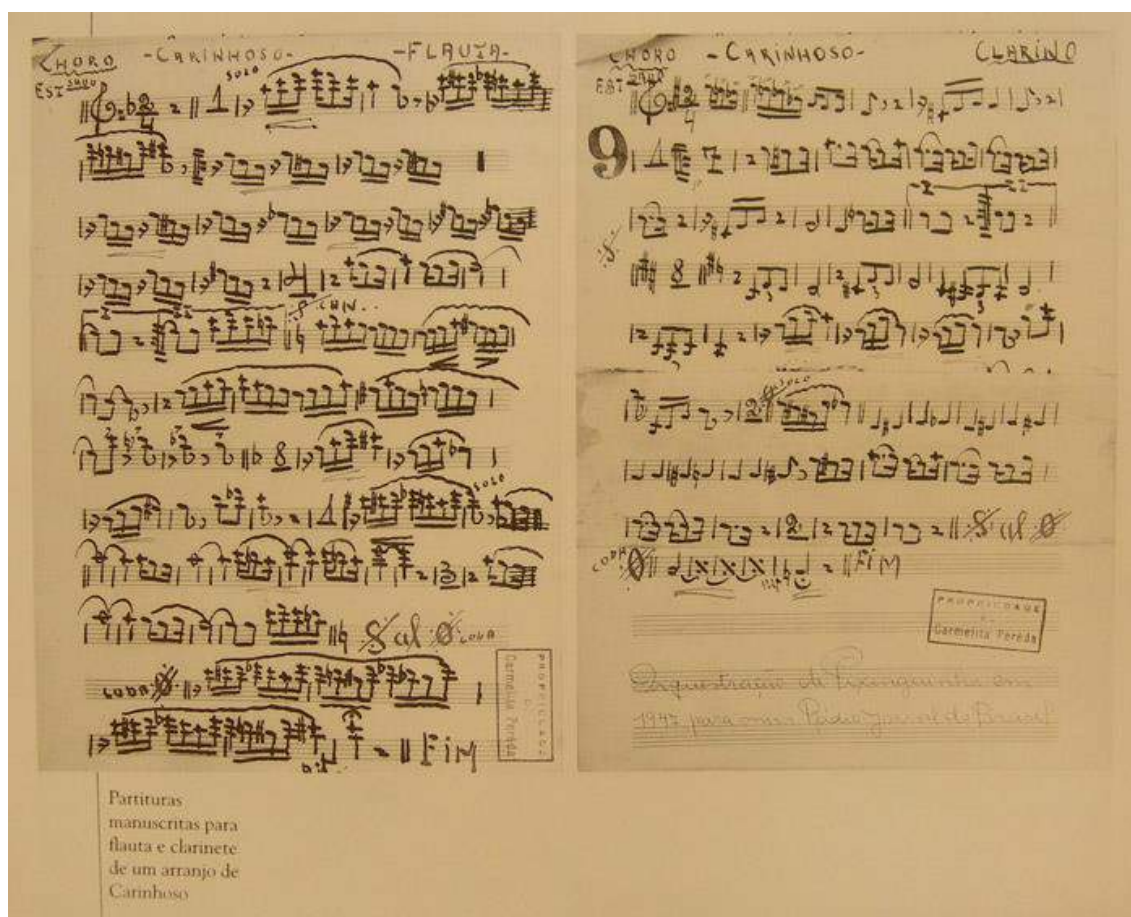 CHORO - CARINHOSO - - FLAUTA -
SOLO
2
4
1
4
CAN..
8
SOLO
1
3
𝄋 al CODA
CODA
FIM
PROPRIEDADE
Carmelita Pereda
CHORO - CARINHOSO - CLARINO
2
4
9
1
7
8
SOLO
2
2
𝄋 al
CODA
FIM
PROPRIEDADE
Carmelita Pereda
Orquestração de Pixinguinha em
1947 para Rádio Jornal do Brasil
Partituras
manuscritas para
flauta e clarinete
de um arranjo de
Carinhoso